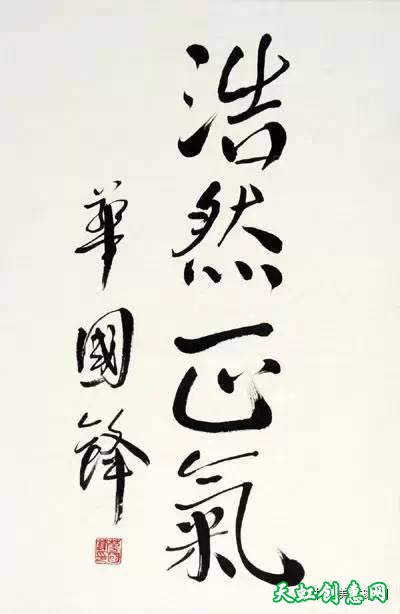 浩然正氣
華國鋒
天虹创意网